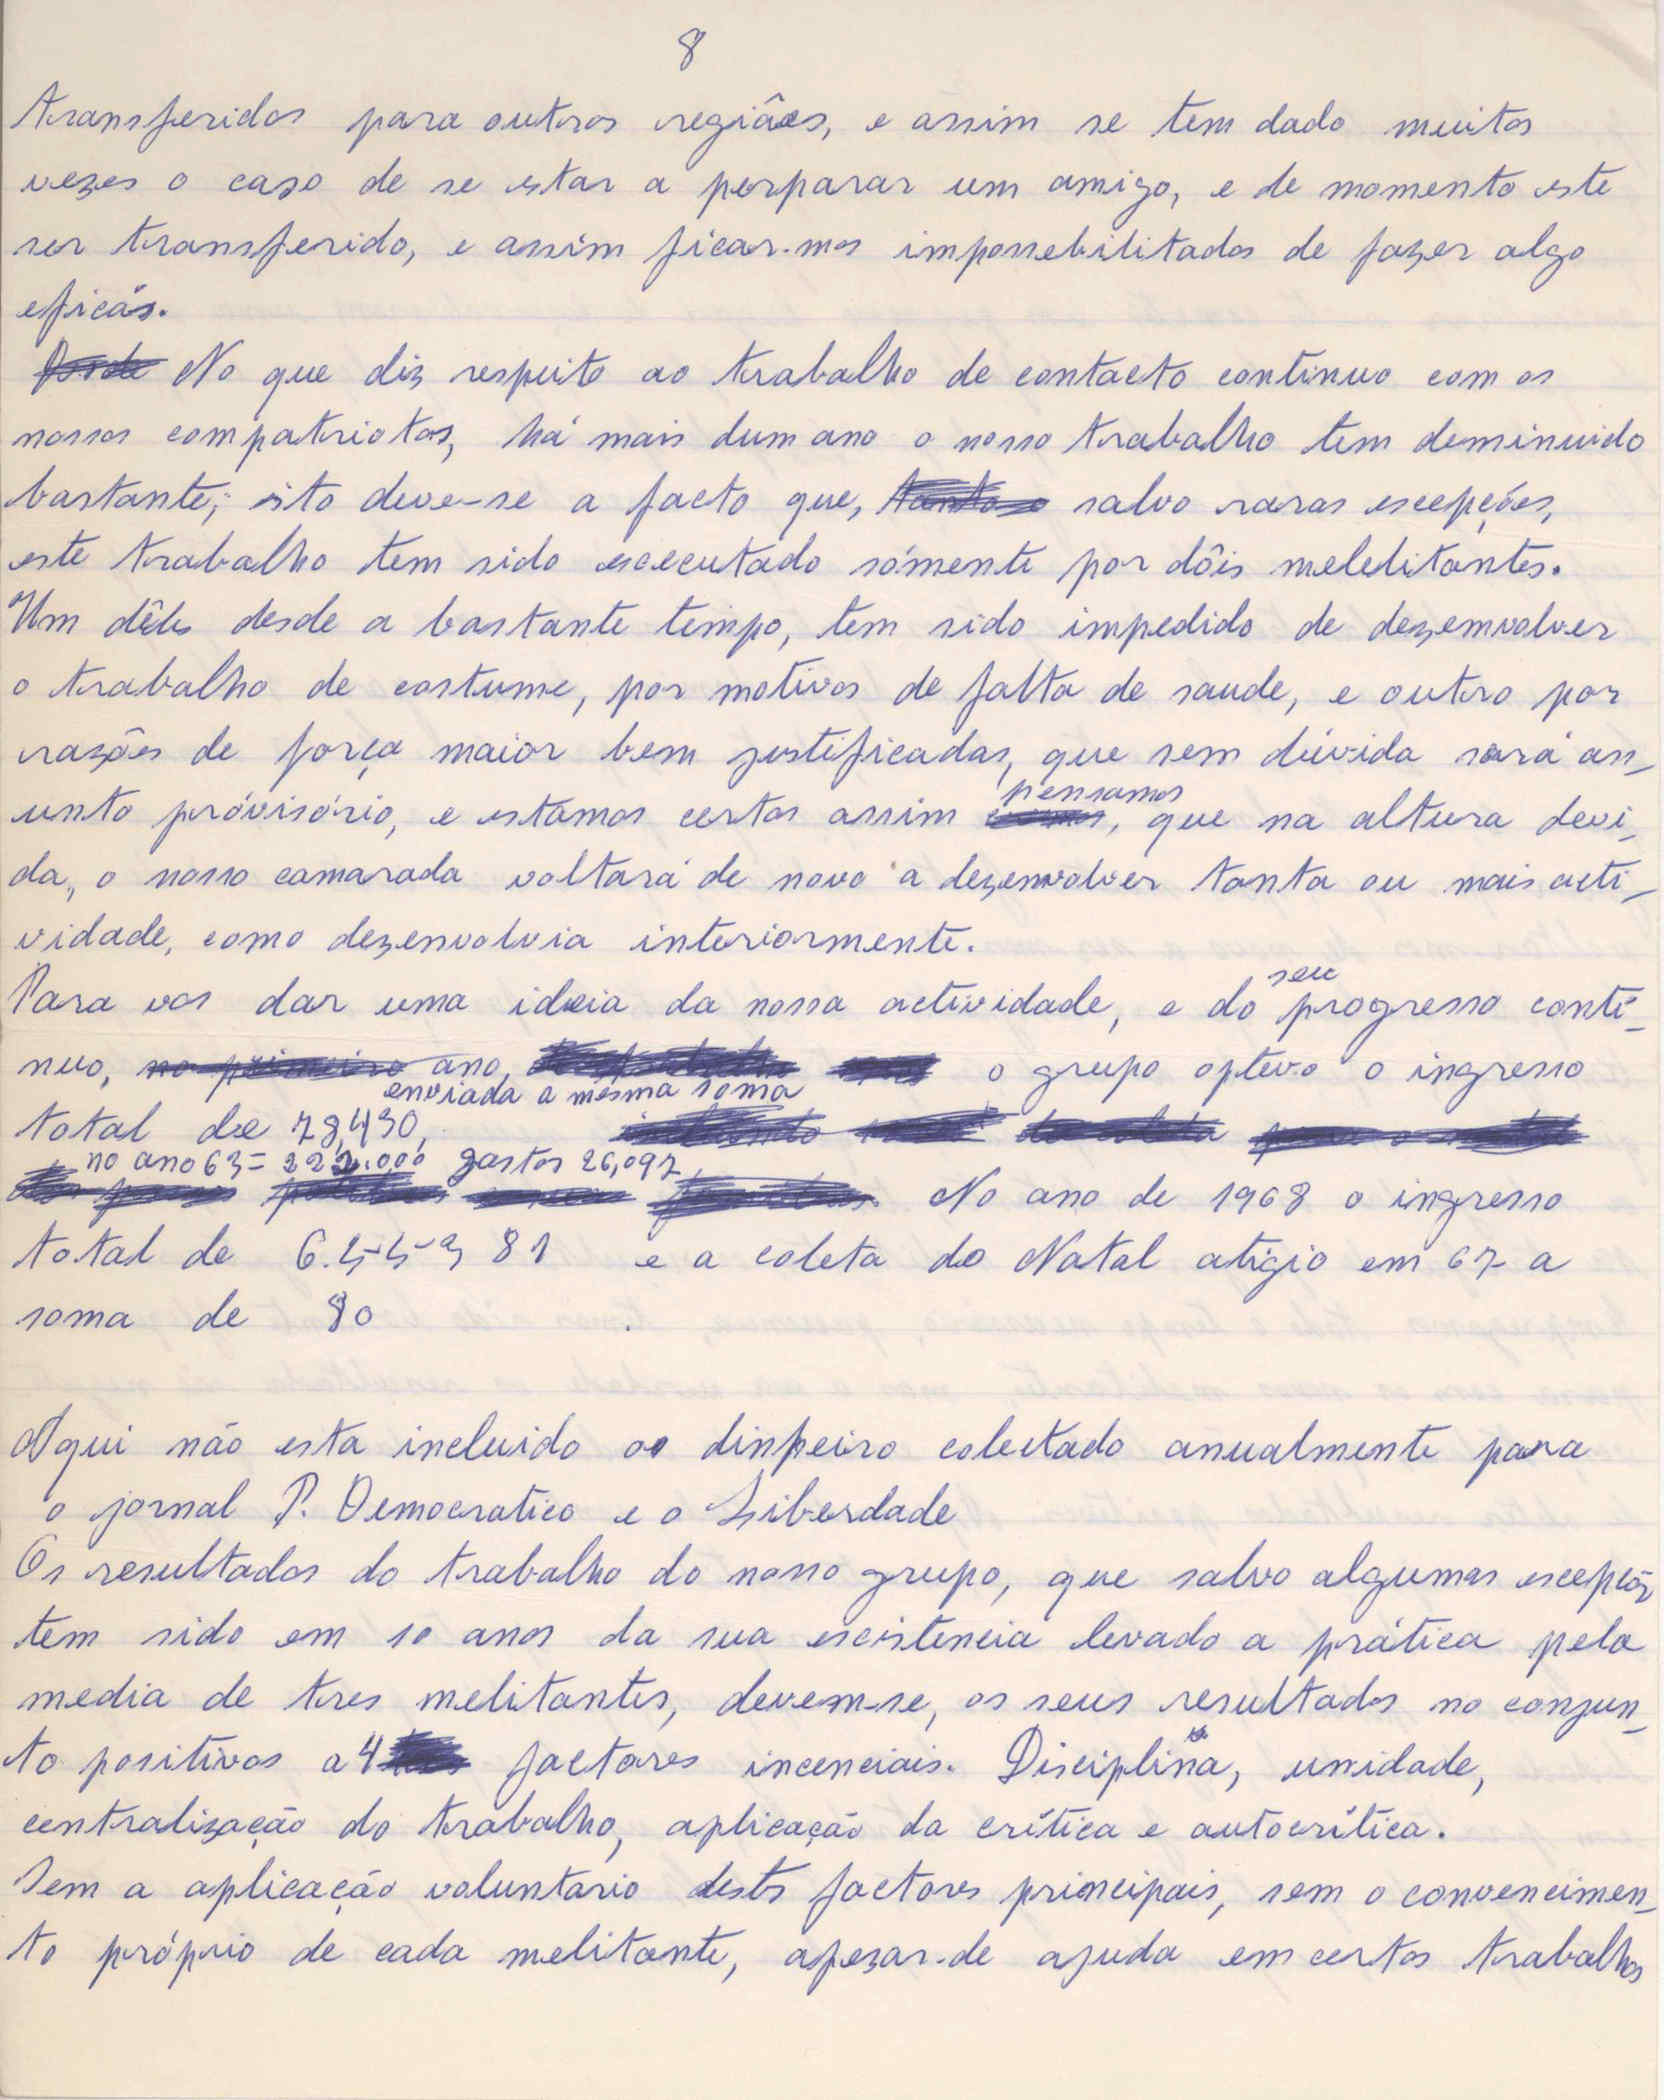 8
transferidos para outros regiões, e assim se tem dado muitas
vezes o caso de se estar a perparar um amigo, e de momento este
ser transferido, e assim ficar-mos impossebilitados de fazer algo
eficás.
No que diz respeito ao trabalho de contacto continuo com os
nossos compatriotas, há mais dum ano o nosso trabalho tem deminuido
bastante; isto deve-se a facto que, salvo raras escepções,
este trabalho tem sido escecutado sómente por dôis melelitantes.
Um dêles desde a bastante tempo, tem sido impedido de dezemvolver
o trabalho de costume, por motivos de falta de saude, e outro por
razões de força maior bem justificadas, que sem dúvida será as-
unto próvisório, e estamos certos assim pensamos, que na altura devi-
da, o nosso camarada voltará de novo a dezenvolver tanta ou mais acti-
vidade, como dezenvolvia interiormente.
Para vos dar uma ideia da nossa actividade, e do seu progresso conti-
nuo, no primeiro ano, o grupo optevo o ingresso
enviada a mesma soma
total de 78,430,
no ano 63 = 222.000 gastos 26,097
No ano de 1968 o ingresso
total de e a coleta do Natal atigio em 67 a
soma de 80
Aqui não esta incluido o dinheiro colectado anualmente para
o jornal P. Democratico e o Liberdade
Os resultados do trabalho do nosso grupo, que salvo algumas escepções
tem sido em 10 anos da sua escistencia levado a prática pela
media de tres melitantes, devem-se, os seus resultados no conjun-
to positivos a 4 factores incenciais. Disciplina, unidade,
centralização do trabalho, aplicação da crítica e autocrítica.
Sem a aplicação voluntario destes factores principais, sem o convencimen-
to próprio de cada melitante, apezar-de ajuda em certos trabalhos